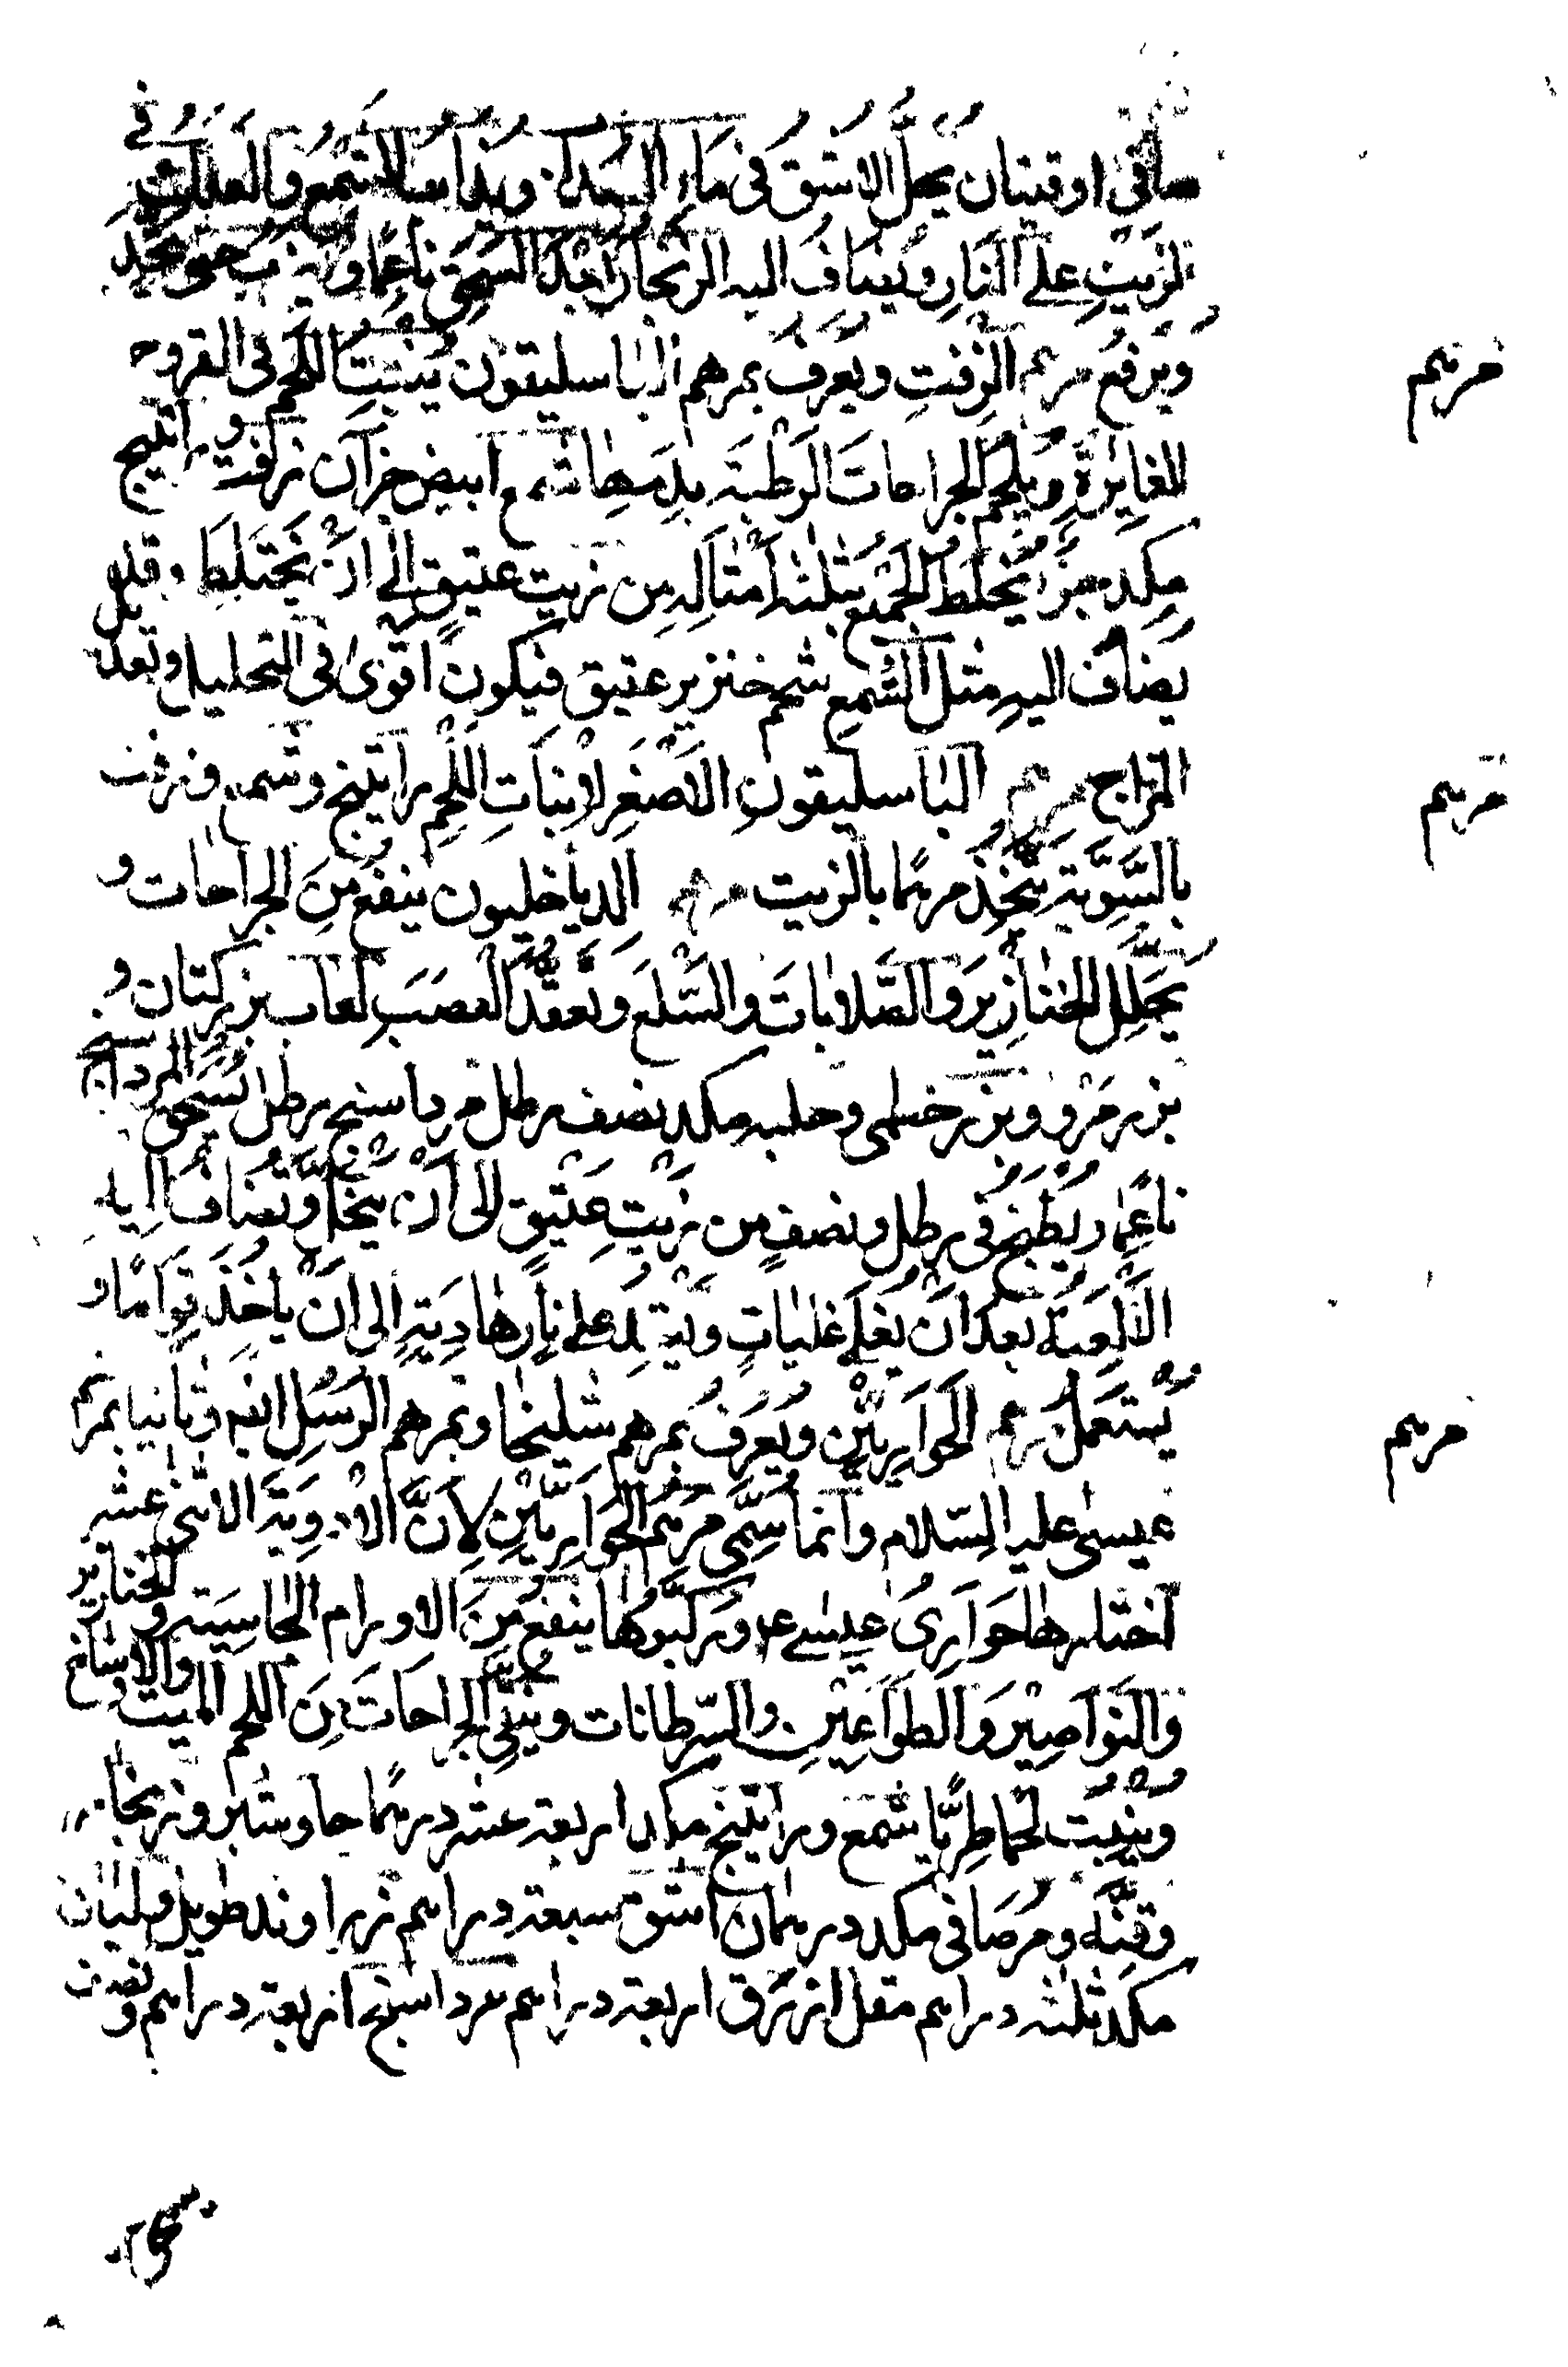 صافي اوقيتان يحل الاشق في ماء السداب ويذاب الشمع والعلك في
الزيت على النار ويضاف اليه الزنجار بعد السحق ناعما ويضرب حتى يجيد
مرهم
ويرفع مرهم الزفت ويعرف بمرهم الباسليقون ينبت اللحم في القروح
الغايرة ويلحم الجراحات الرطبة بدمها شمع ابيض جزآن زفت وراتينج
مكد جزء يخلط الجميع بثلثة امثاله من زيت عتيق الى ان يختلط وقد
يضاف اليه مثل الشمع شحم خنزير عتيق فيكون اقوى في التحليل وتعديل
مرهم
المزاج مرهم الباسليقون الاصغر لانبات اللحم راتينج وشمع وزفت
بالسوية يتخذ مرهما بالزيت مرهم الدياخليون ينفع من الجراحات و
يحلل الخنازير والصلابات والسلع وتعقد العصب لعاب بزر كتان و
بزر مرو وبزر خطمى وحلبه مكد نصف رطل مرداسنج رطل يسحق المرداسنج
ناعما ويطبخ في رطل ونصف من زيت عتيق الى ان ينحل ويضاف اليه
الالعبة بعد ان يغلى غليات و على نار هادية الى ان ياخذ قواما و
مرهم
يستعمل مرهم الحواريين ويعرف بمرهم شليخا وبمرهم الرسل ايضا وثانيا بمرهم
عيسى عليه السلام وانما سمي مرهم الحواريين لان الادوية الاثنى عشر
اختارها حواري عيسى عم وركبوها ينفع من الاورام الجاسية والخنازير
والنواصير والطواعين والسرطانات وينقي الجراحات من اللحم الميت والاوساخ
وينبت لحما طريا شمع وراتينج مكد اربعة عشر درهما جاوشير وزنجار
وقنه ومر صافي مكد درهمان اشق سبعة دراهم زراوند طويل ولبان
مكد ثلثة دراهم مقل ازرق اربعة دراهم مرداسنج اربعة دراهم ونصف